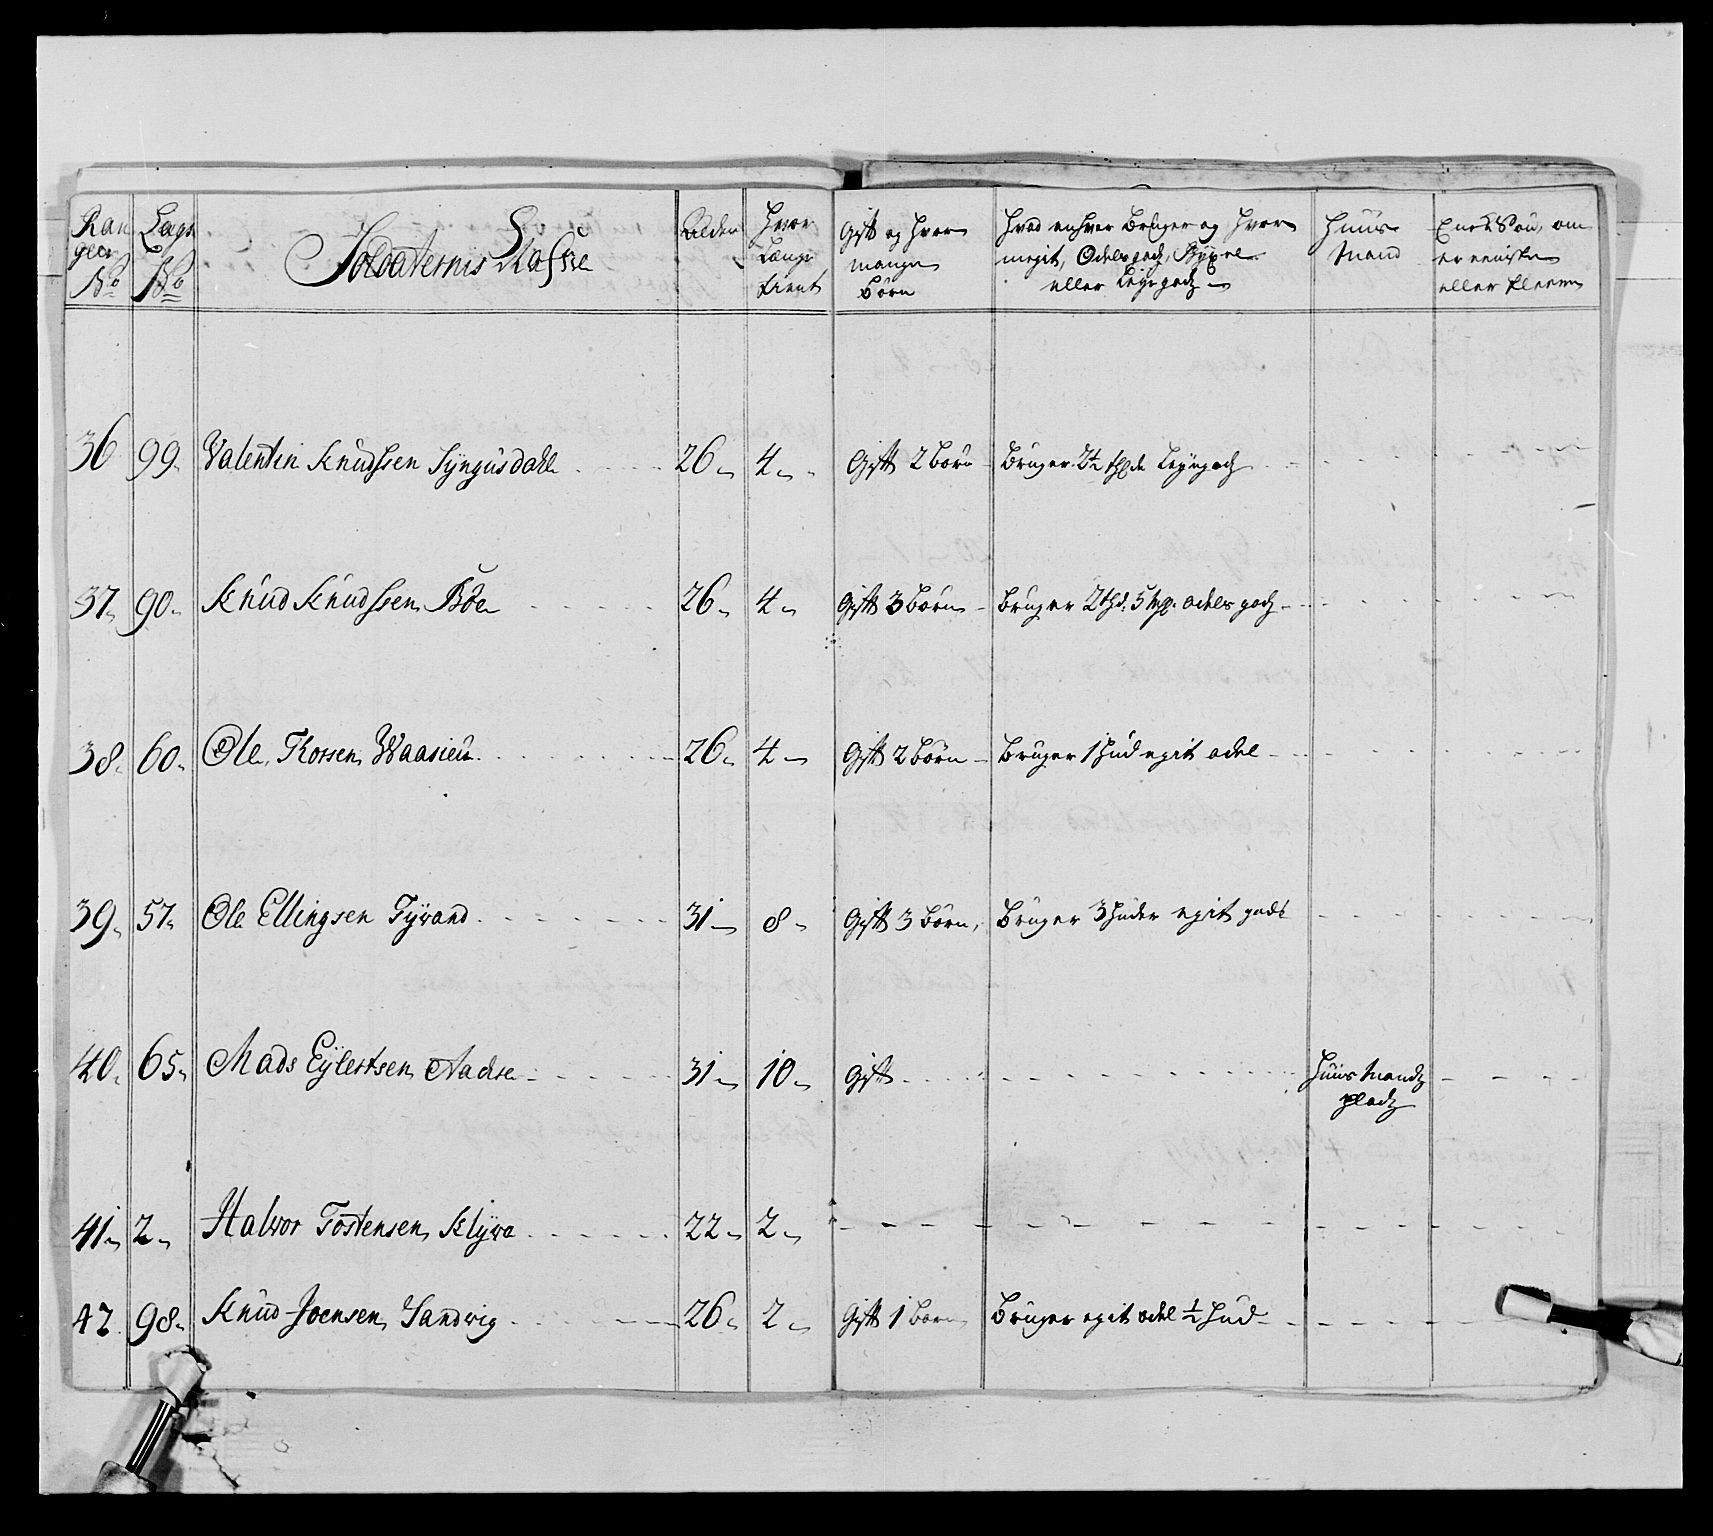 Ran
geer
No
Lægs
No
Soldaternis Nafne
Alder
Hvor
Længe
tient
Gift og hvor
mange
Børn
Hvad enhver Bruger og hvor
megit, Odels godz, Byxel
eller Leyegodz
Huus
Mand
om
er
eller fleere
36 99 Valentin Knudssen Syngusdahl 26 4 Gift 2 Børn Bruger 2½ Leyegodz
37 90 Knud Knudssen Bøe 26 4 Gift 3 Børn Bruger 2 5 odels godz
38 60 Ole Torssen Waasieu 26 4 Gift 2 Børn Bruger 1 Hud egit odel
39 57 Ole Ellingsen Tyvand 31 8 Gift 3 Børn Bruger 3 Huder egit gods
40 65 Mads Eylertsen 31 10 Gift Huus Mandz
pladz
41 2 Halvor Tostensen Klyve 22 2
42 98 Knud Joensen Sandvig 26 2 Gift 1 Barn Bruger egit odel ½ Hud